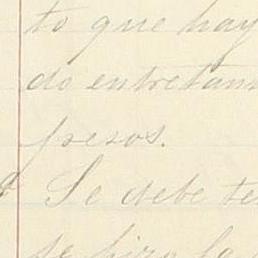 to que hay
do entretan
presos.
Se debe te
se hizo la